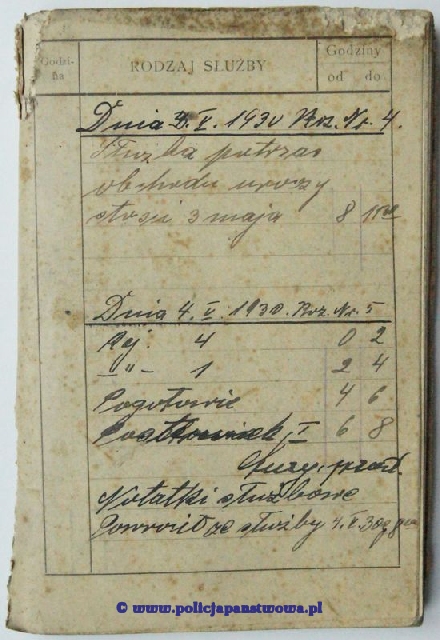 Godzi-
na
RODZAJ SŁUŻBY
Godziny
od do
Dnia 3. V. 1930 Roz. Nr. 4.
Służba potczas
obchodu uroczy
stości 3 maja 8
Dnia 4. V. 1930. Roz. Nr. 5
Rej. 4 0 2
–„– 1 2 4
Pogotowie 4 6
I 6 8
Notatki służbowe
Powrót ze służby 4.V.30
© www.policjapanstwowa.pl